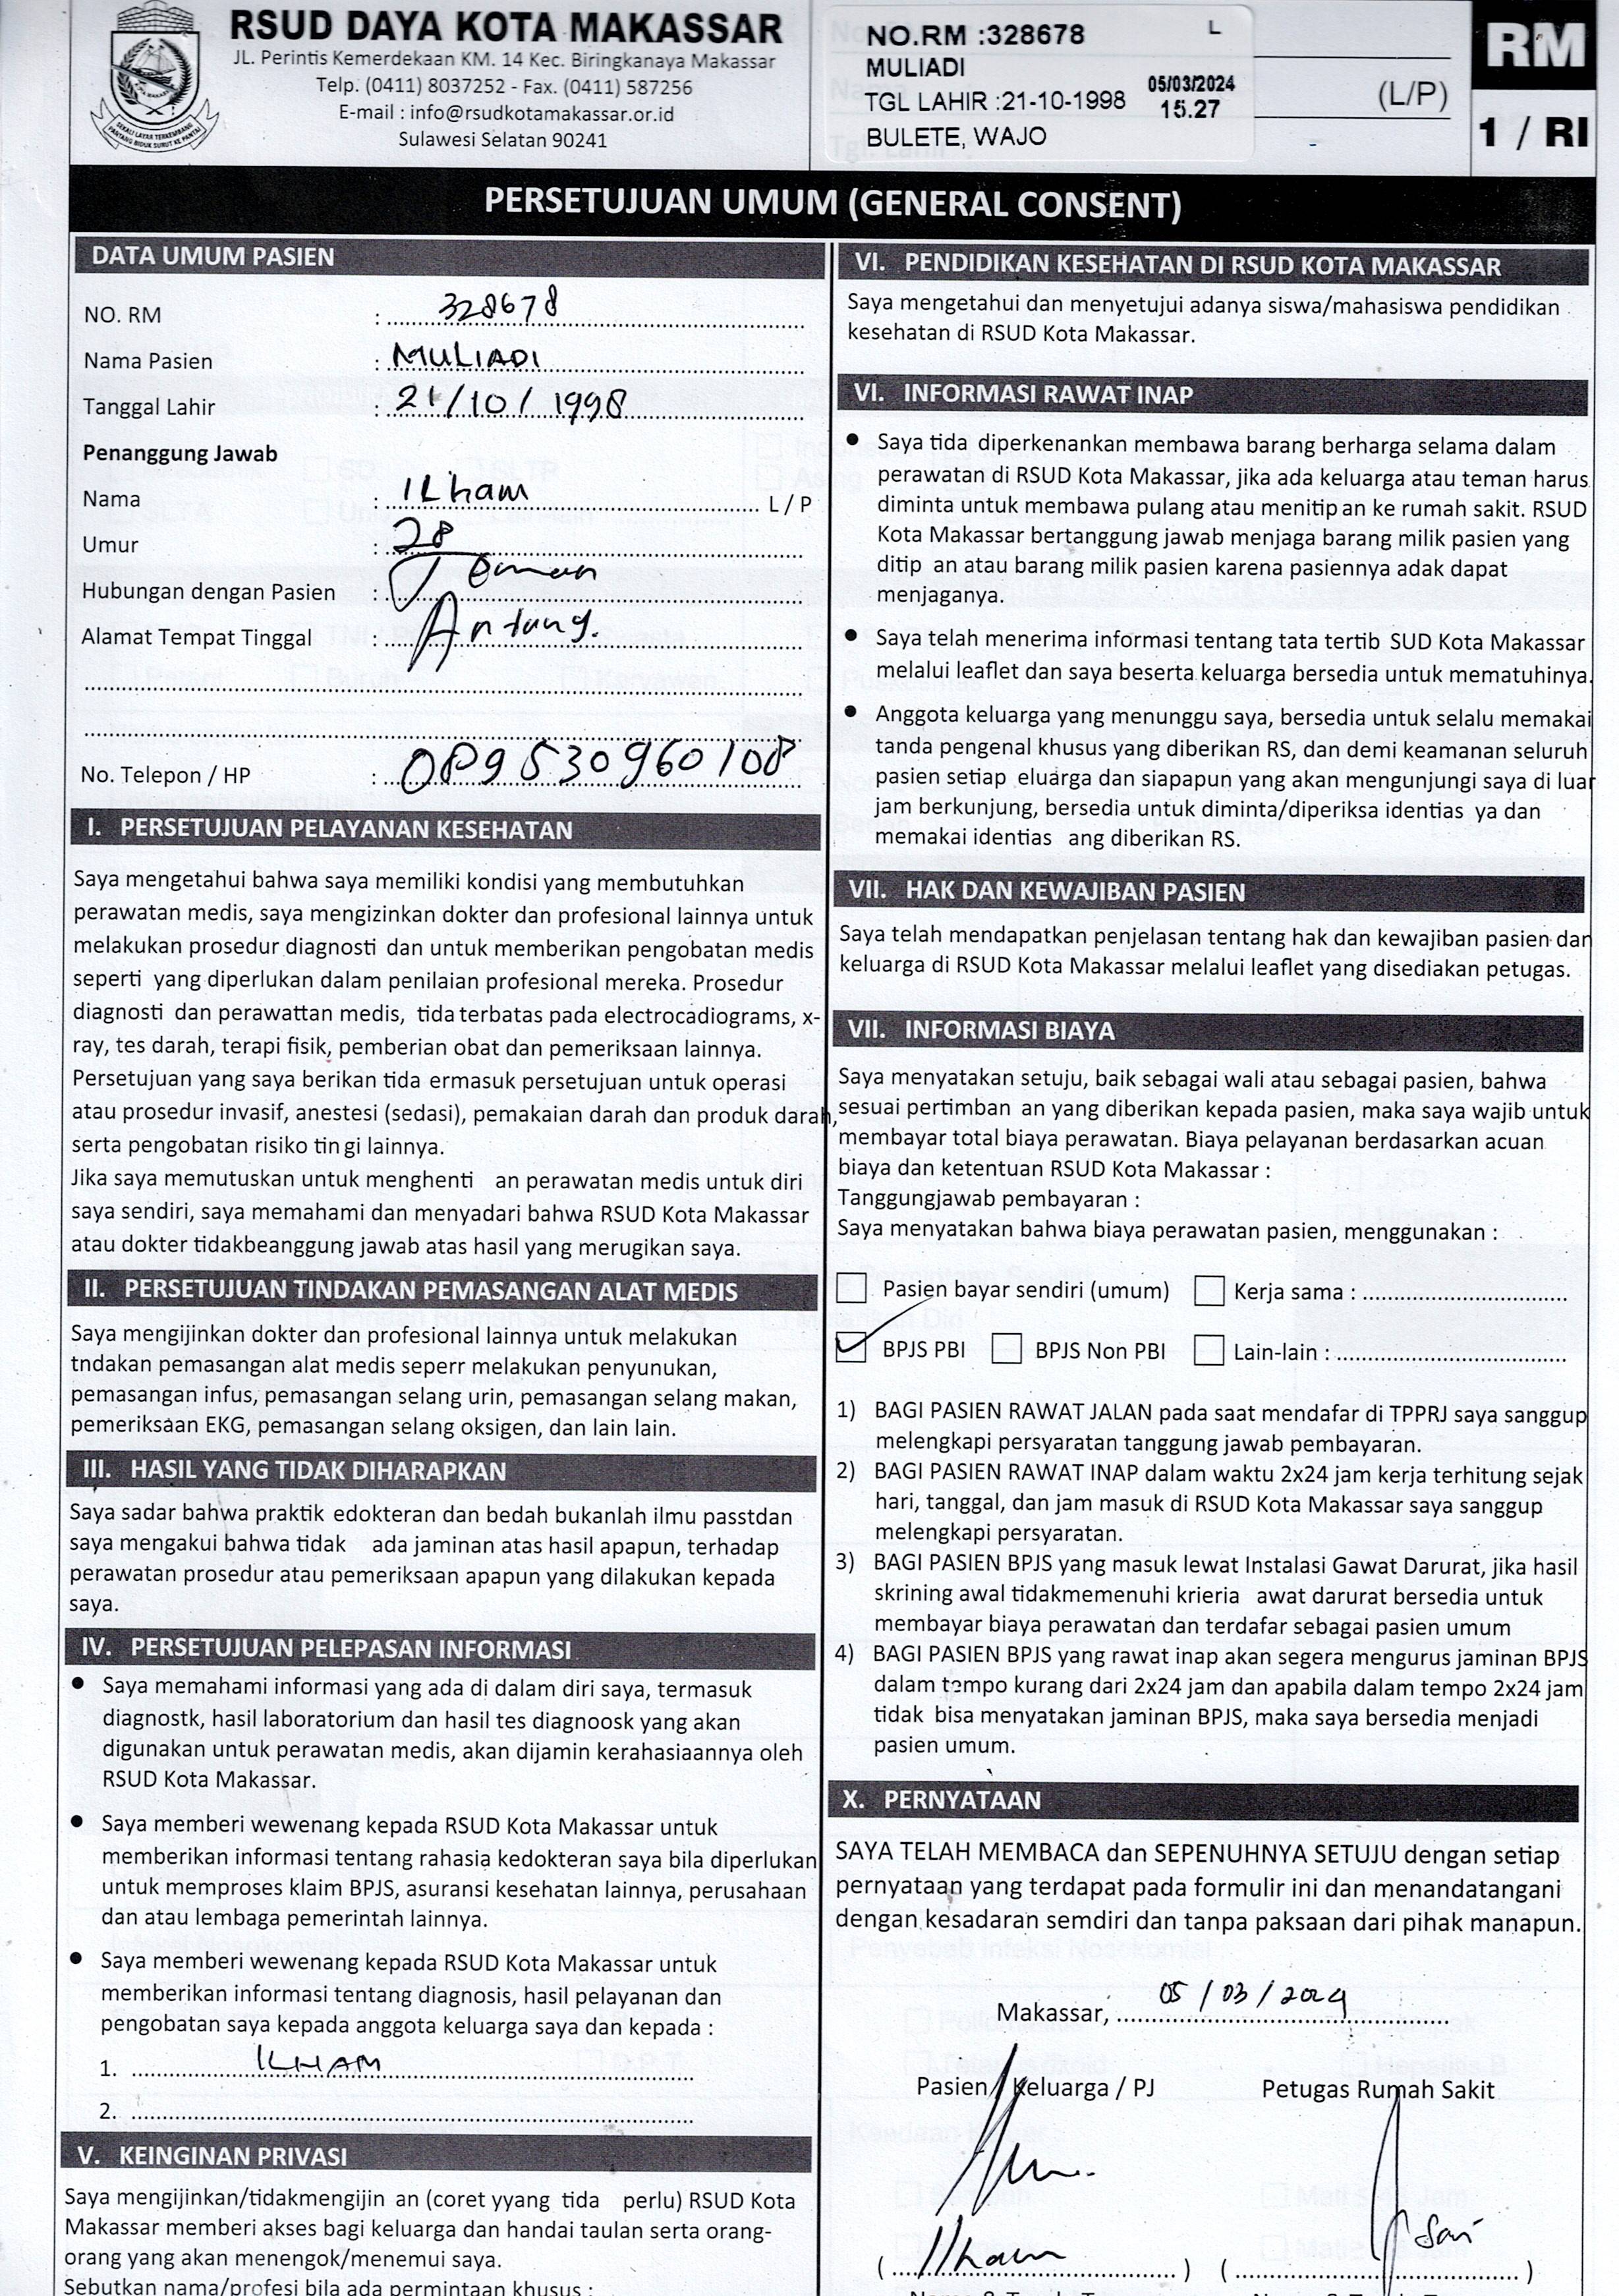 RSUD DAYA KOTA MAKASSAR
JL. Perintis Kemerdekaan KM. 14 Kec. Biringkanaya Makassar
Telp. (0411) 8037252 - Fax. (0411) 587256
E-mail : info@rsudkotamakassar.or.id
Sulawesi Selatan 90241
NO.RM :328678 L
MULIADI
TGL LAHIR :21-10-1998 05/03/2024
15.27
BULETE, WAJO
(L/P)
RM
1 / RI
PERSETUJUAN UMUM (GENERAL CONSENT)
DATA UMUM PASIEN
NO. RM : 328678
Nama Pasien : MULIADI
Tanggal Lahir : 21/10/1998
Penanggung Jawab
Nama : ILham L / P
Umur : 28
Hubungan dengan Pasien : Teman
Alamat Tempat Tinggal : Antang.
No. Telepon / HP : 089530960108
I. PERSETUJUAN PELAYANAN KESEHATAN
Saya mengetahui bahwa saya memiliki kondisi yang membutuhkan
perawatan medis, saya mengizinkan dokter dan profesional lainnya untuk
melakukan prosedur diagnosti dan untuk memberikan pengobatan medis
seperti yang diperlukan dalam penilaian profesional mereka. Prosedur
diagnosti dan perawattan medis, tida terbatas pada electrocadiograms, x-
ray, tes darah, terapi fisik, pemberian obat dan pemeriksaan lainnya.
Persetujuan yang saya berikan tida ermasuk persetujuan untuk operasi
atau prosedur invasif, anestesi (sedasi), pemakaian darah dan produk darah,
serta pengobatan risiko tin gi lainnya.
Jika saya memutuskan untuk menghenti an perawatan medis untuk diri
saya sendiri, saya memahami dan menyadari bahwa RSUD Kota Makassar
atau dokter tidakbeanggung jawab atas hasil yang merugikan saya.
II. PERSETUJUAN TINDAKAN PEMASANGAN ALAT MEDIS
Saya mengijinkan dokter dan profesional lainnya untuk melakukan
tndakan pemasangan alat medis seperr melakukan penyunukan,
pemasangan infus, pemasangan selang urin, pemasangan selang makan,
pemeriksaan EKG, pemasangan selang oksigen, dan lain lain.
III. HASIL YANG TIDAK DIHARAPKAN
Saya sadar bahwa praktik edokteran dan bedah bukanlah ilmu passtdan
saya mengakui bahwa tidak ada jaminan atas hasil apapun, terhadap
perawatan prosedur atau pemeriksaan apapun yang dilakukan kepada
saya.
IV. PERSETUJUAN PELEPASAN INFORMASI
● Saya memahami informasi yang ada di dalam diri saya, termasuk
diagnostk, hasil laboratorium dan hasil tes diagnoosk yang akan
digunakan untuk perawatan medis, akan dijamin kerahasiaannya oleh
RSUD Kota Makassar.
● Saya memberi wewenang kepada RSUD Kota Makassar untuk
memberikan informasi tentang rahasia kedokteran saya bila diperlukan
untuk memproses klaim BPJS, asuransi kesehatan lainnya, perusahaan
dan atau lembaga pemerintah lainnya.
● Saya memberi wewenang kepada RSUD Kota Makassar untuk
memberikan informasi tentang diagnosis, hasil pelayanan dan
pengobatan saya kepada anggota keluarga saya dan kepada :
1. ILHAM
2.
V. KEINGINAN PRIVASI
Saya mengijinkan/tidakmengijin an (coret yyang tida perlu) RSUD Kota
Makassar memberi akses bagi keluarga dan handai taulan serta orang-
orang yang akan menengok/menemui saya.
Sebutkan nama/profesi bila ada permintaan khusus :
VI. PENDIDIKAN KESEHATAN DI RSUD KOTA MAKASSAR
Saya mengetahui dan menyetujui adanya siswa/mahasiswa pendidikan
kesehatan di RSUD Kota Makassar.
VI. INFORMASI RAWAT INAP
● Saya tida diperkenankan membawa barang berharga selama dalam
perawatan di RSUD Kota Makassar, jika ada keluarga atau teman harus
diminta untuk membawa pulang atau menitip an ke rumah sakit. RSUD
Kota Makassar bertanggung jawab menjaga barang milik pasien yang
ditip an atau barang milik pasien karena pasiennya adak dapat
menjaganya.
● Saya telah menerima informasi tentang tata tertib SUD Kota Makassar
melalui leaflet dan saya beserta keluarga bersedia untuk mematuhinya.
● Anggota keluarga yang menunggu saya, bersedia untuk selalu memakai
tanda pengenal khusus yang diberikan RS, dan demi keamanan seluruh
pasien setiap eluarga dan siapapun yang akan mengunjungi saya di luar
jam berkunjung, bersedia untuk diminta/diperiksa identias ya dan
memakai identias ang diberikan RS.
VII. HAK DAN KEWAJIBAN PASIEN
Saya telah mendapatkan penjelasan tentang hak dan kewajiban pasien dan
keluarga di RSUD Kota Makassar melalui leaflet yang disediakan petugas.
VII. INFORMASI BIAYA
Saya menyatakan setuju, baik sebagai wali atau sebagai pasien, bahwa
sesuai pertimban an yang diberikan kepada pasien, maka saya wajib untuk
membayar total biaya perawatan. Biaya pelayanan berdasarkan acuan
biaya dan ketentuan RSUD Kota Makassar :
Tanggungjawab pembayaran :
Saya menyatakan bahwa biaya perawatan pasien, menggunakan :
Pasien bayar sendiri (umum) Kerja sama :
BPJS PBI BPJS Non PBI Lain-lain :
1) BAGI PASIEN RAWAT JALAN pada saat mendafar di TPPRJ saya sanggup
melengkapi persyaratan tanggung jawab pembayaran.
2) BAGI PASIEN RAWAT INAP dalam waktu 2x24 jam kerja terhitung sejak
hari, tanggal, dan jam masuk di RSUD Kota Makassar saya sanggup
melengkapi persyaratan.
3) BAGI PASIEN BPJS yang masuk lewat Instalasi Gawat Darurat, jika hasil
skrining awal tidakmemenuhi krieria awat darurat bersedia untuk
membayar biaya perawatan dan terdafar sebagai pasien umum
4) BAGI PASIEN BPJS yang rawat inap akan segera mengurus jaminan BPJS
dalam tempo kurang dari 2x24 jam dan apabila dalam tempo 2x24 jam
tidak bisa menyatakan jaminan BPJS, maka saya bersedia menjadi
pasien umum.
X. PERNYATAAN
SAYA TELAH MEMBACA dan SEPENUHNYA SETUJU dengan setiap
pernyataan yang terdapat pada formulir ini dan menandatangani
dengan kesadaran semdiri dan tanpa paksaan dari pihak manapun.
Makassar, 05/03/2024
Pasien / Keluarga / PJ Petugas Rumah Sakit
( Ilham ) ( Sari )